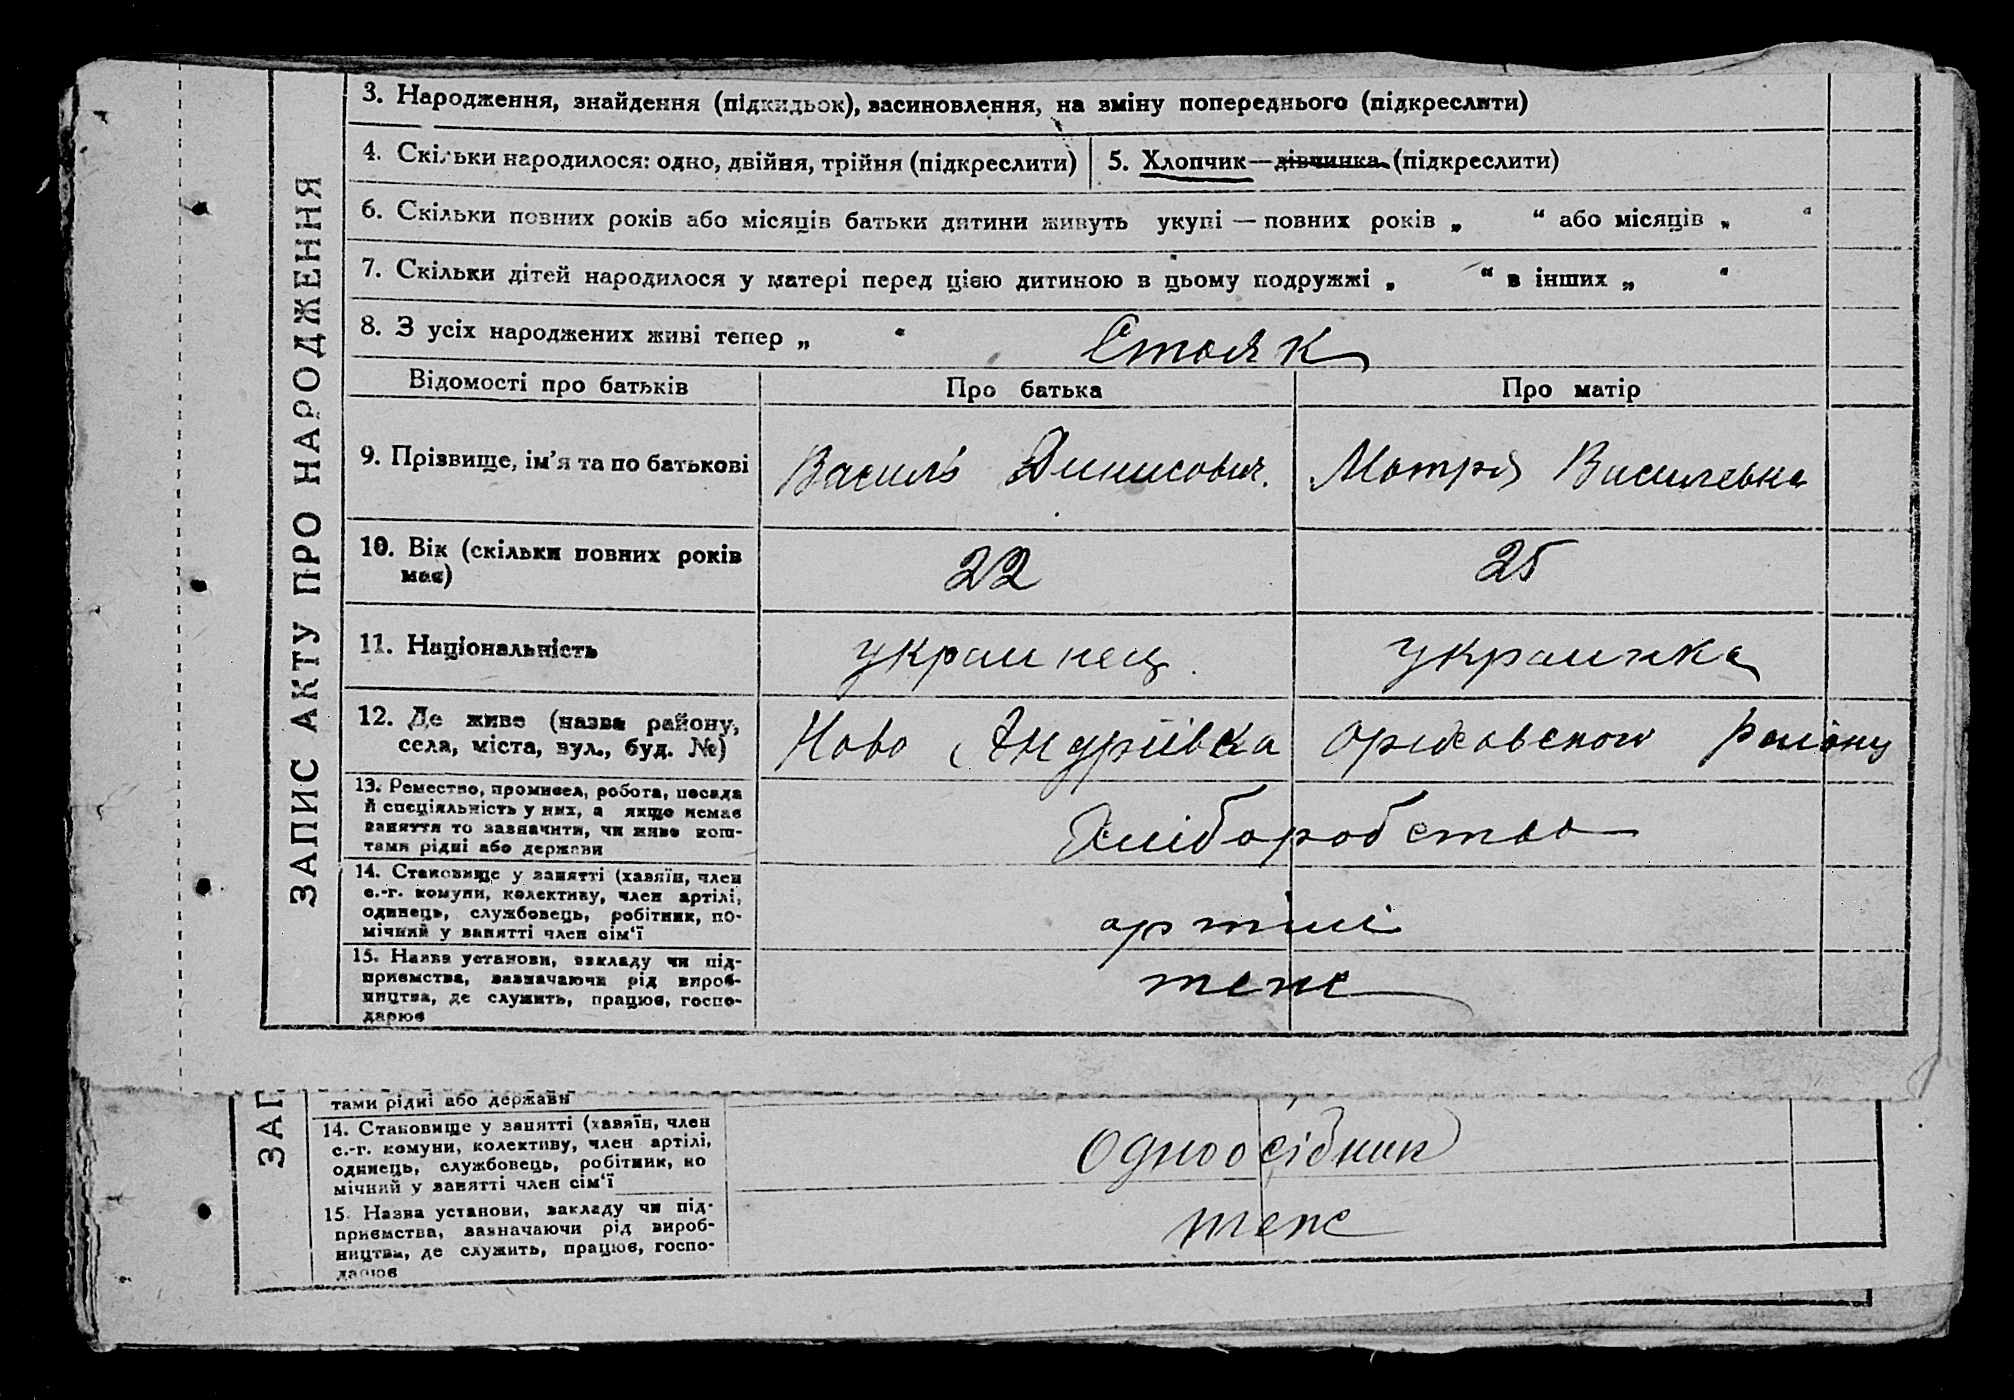 ЗАПИС АКТУ ПРО НАРОДЖЕННЯ
3. Народження, знайдення (підкидьок), васиновлення, на зміну попереднього (підкреслити)
4. Скільки народилося: одно, двійня, трійня (підкреслити) 5. Хлопчик—дівчинка (підкреслити)
6. Скільки повних років або місяців батьки дитини живуть укупі — повних років „ “ або місяців „ “
7. Скільки дітей народилося у матері перед цією дитиною в цьому подружжі „ “ в інших „ “
8. З усіх народжених живі тепер „ “ Стояк
Відомості про батьків Про батька Про матір
9. Прізвище, ім'я та по батькові Василь Динисович. Мотря Василевна
10. Вік (скільки повних років 22 25
має)
11. Національність украинец украинка
12. Де живе (назва району, Ново Андріївка Оріховского Району
села, міста, вул., буд. №)
13. Ремество, промисел, робота, посада
й спеціяльність у них, а якщо немає
заняття то зазначити, чи живе кош- Хліборобство
тами рідні або держави
14. Становище у занятті (хазяїн, член
с.-г. комуни, колективу, член артілі,
одинець, службовець, робітник, по- артілі
мічний у занятті член сім'ї
15. Назва установи, закладу чи під-
приємства, зазначаючи рід вироб- теж
ництва, де служить, працює, госпо-
дарює
ЗАП
тами рідні або держави
14. Становище у занятті (хазяїн, член
с.-г. комуни, колективу, член артілі, Одноосібник
одинець, службовець, робітник, по
мічний у занятті член сім'ї
15. Назва установи, закладу чи під-
приємства, зазначаючи рід вироб- теж
ництва, де служить, працює, госпо-
дарює